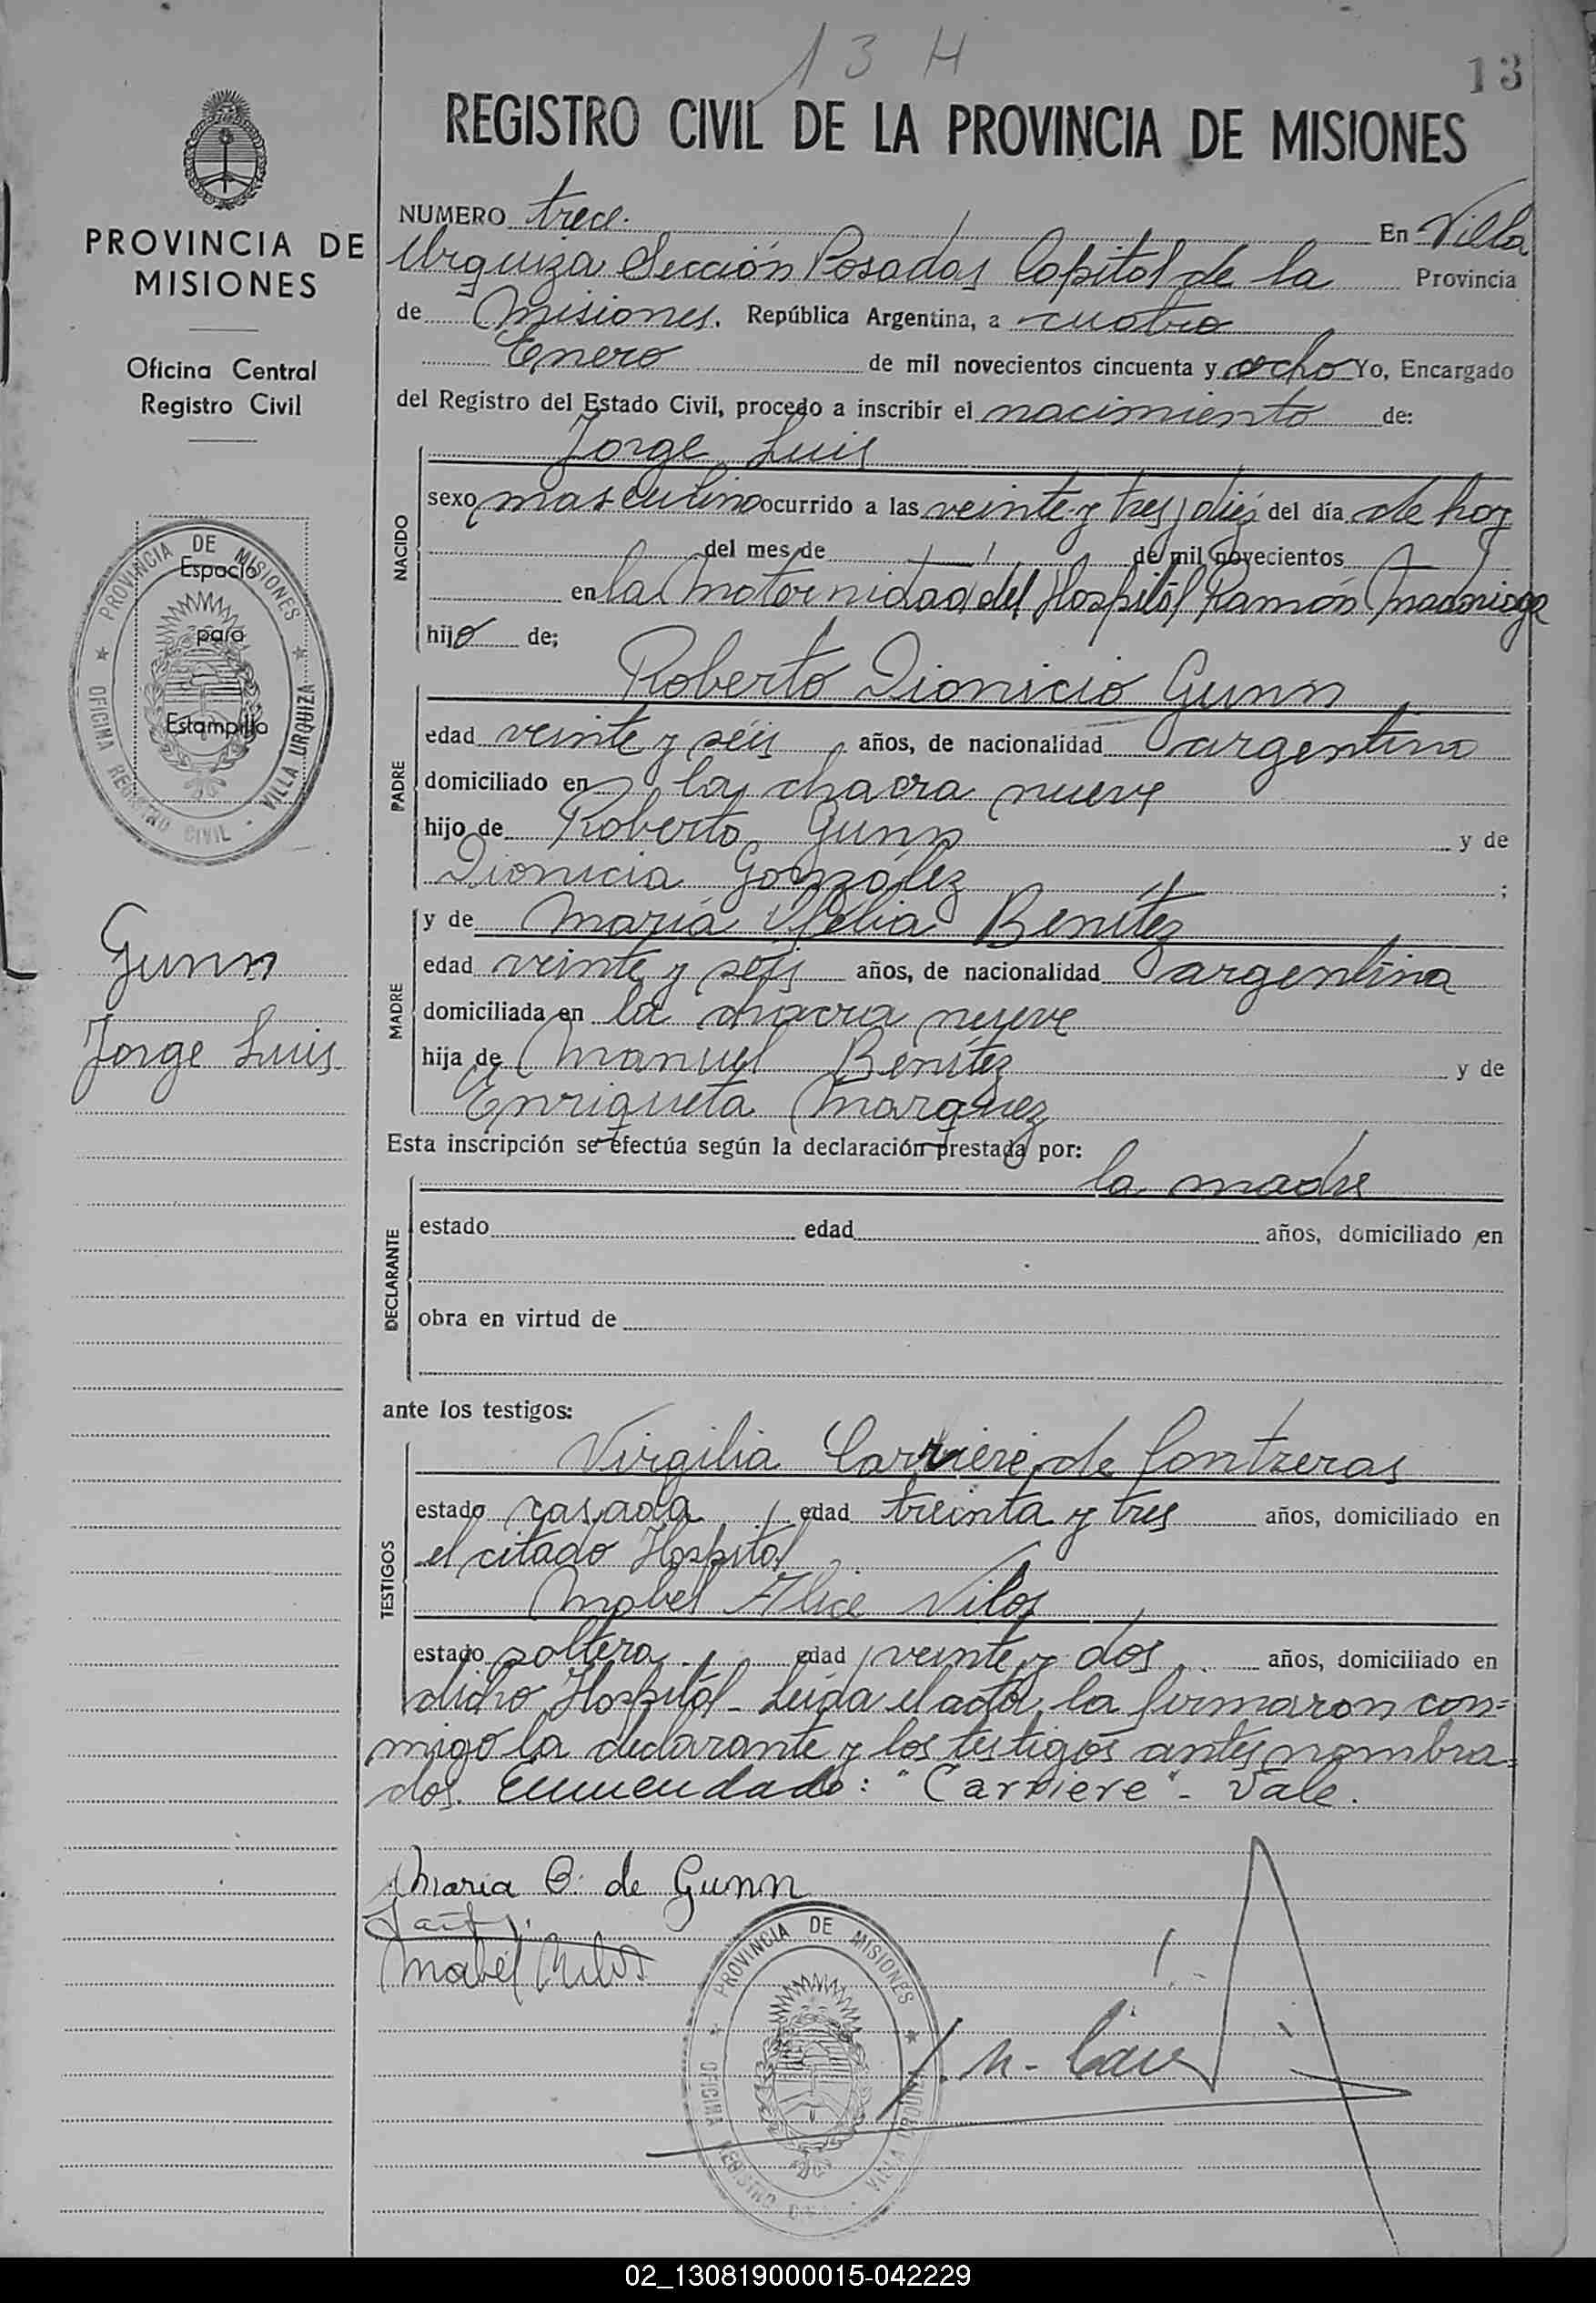 13 H
13
REGISTRO CIVIL DE LA PROVINCIA DE MISIONES
PROVINCIA DE
MISIONES
Oficina Central
Registro Civil
PROVINCIA DE MISIONES
OFICINA REGISTRO CIVIL - VILLA URQUIZA
Espacio
para
Estampilla
Gunn
Jorge Luis
NUMERO trece. En Villa
Urquiza Sección Posadas Capital de la Provincia
de Misiones. República Argentina, a cuatro
Enero de mil novecientos cincuenta y ocho Yo, Encargado
del Registro del Estado Civil, procedo a inscribir el nacimiento de:
NACIDO
Jorge Luis
sexo masculino ocurrido a las veinte y tres y diez del día de hoy
del mes de de mil novecientos
en la Maternidad del Hospital Ramón Madariaga
hijo de:
PADRE
Roberto Dionicio Gunn
edad veinte y séis años, de nacionalidad argentina
domiciliado en la chacra nueve
hijo de Roberto Gunn y de
Dionicia González ;
MADRE
y de María Benítez
edad veinte y séis años, de nacionalidad argentina
domiciliada en la chacra nueve
hija de Manuel Benítez y de
Enriqueta Marquez
Esta inscripción se efectúa según la declaración prestada por:
DECLARANTE
la madre
estado edad años, domiciliado en
obra en virtud de
ante los testigos:
TESTIGOS
Virgilia Carriere de Contreras
estado casada edad treinta y tres años, domiciliado en
el citado Hospital
Mabel Alice
estado soltera edad veinte y dos años, domiciliado en
dicho Hospital - Leída el acta, la firmaron con=
migo la declarante y los testigos antes nombra=
dos. Enmendado: "Carriere" - Vale.
Maria B. de Gunn
Mabel
PROVINCIA DE MISIONES
OFICINA REGISTRO CIVIL - VILLA URQUIZA
02_130819000015-042229